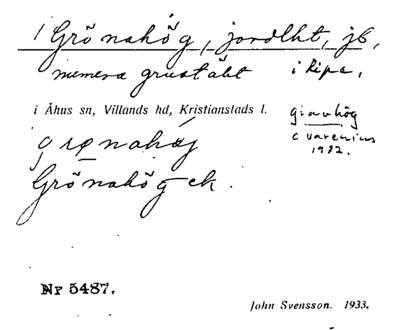 1 Grönahög, jordlht, jb,
numera grustäkt i Ripa,
i Åhus sn, Villands hd, Kristianstads l.
gravhög
C Varenius
1982.
grønahøj
Grönahög ek.
Nr 5487.
John Svensson. 1933.